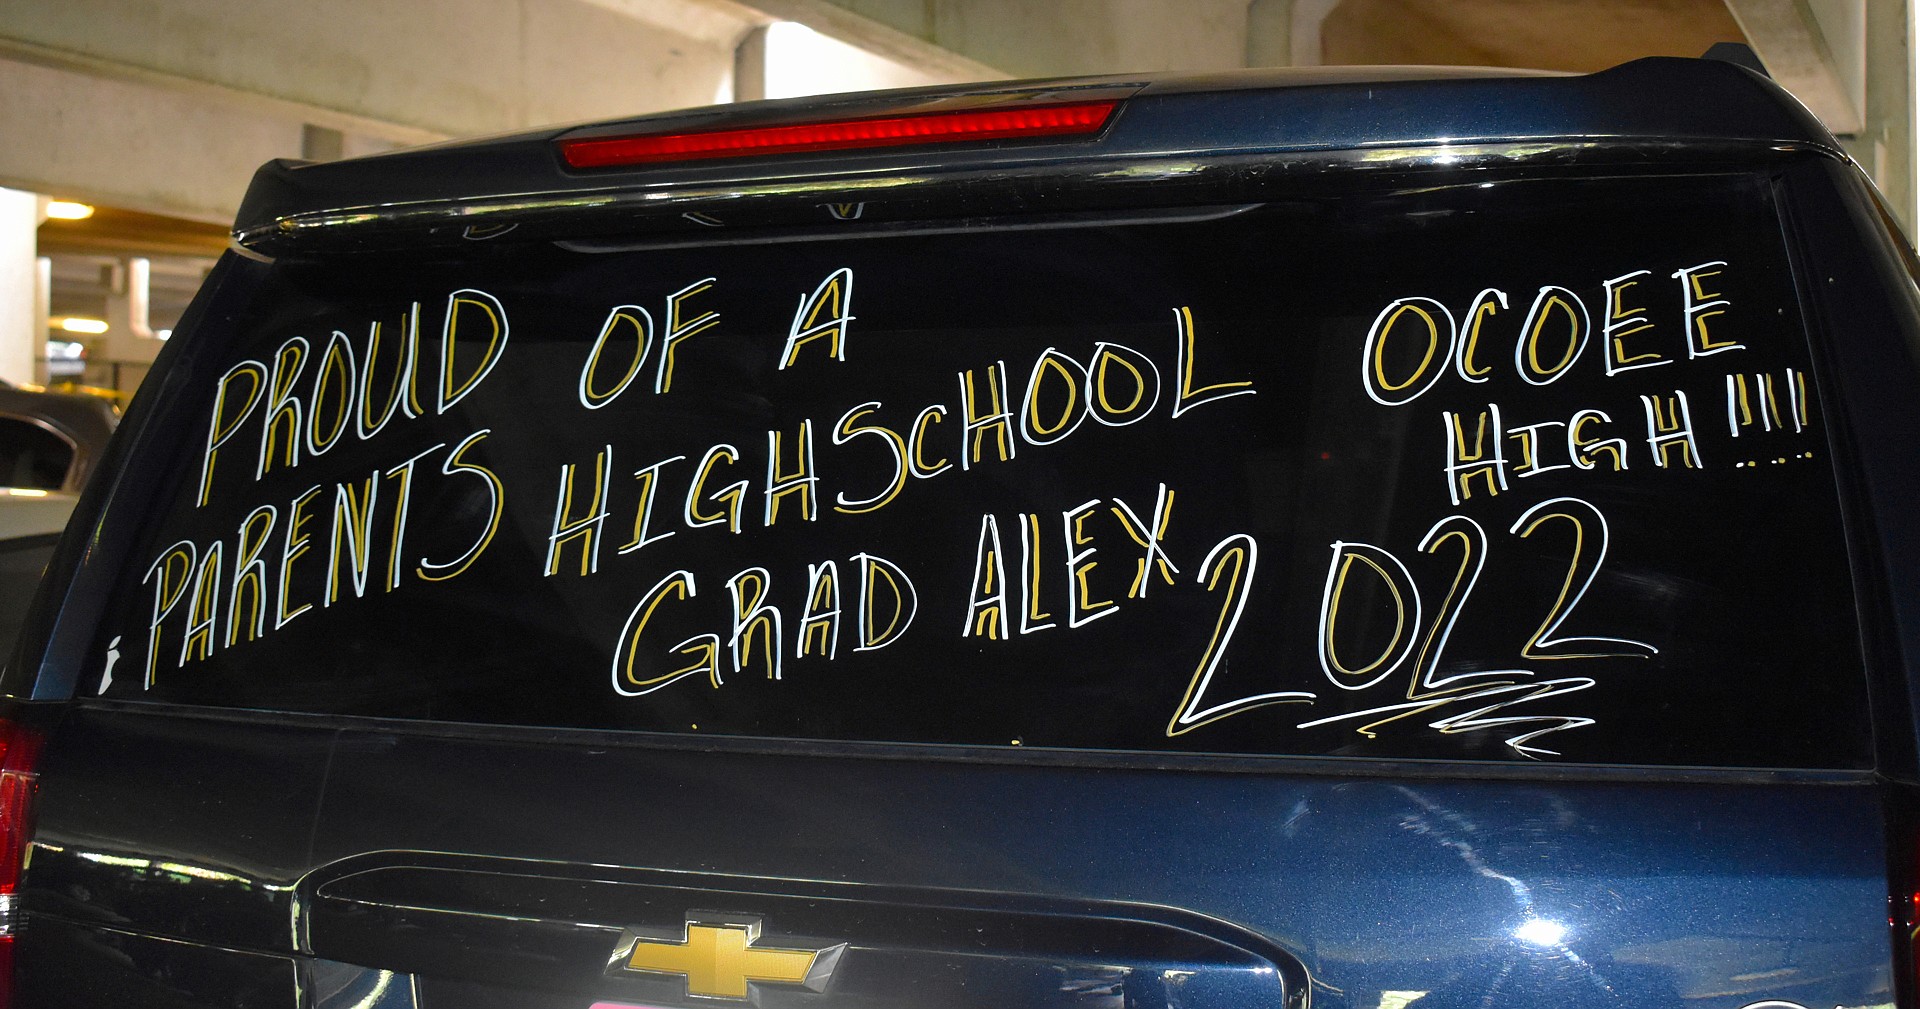 PROUD OF A
PARENTS HIGHSCHOOL
GRAD ALEX
OCOEE
HIGH!!!!
2022